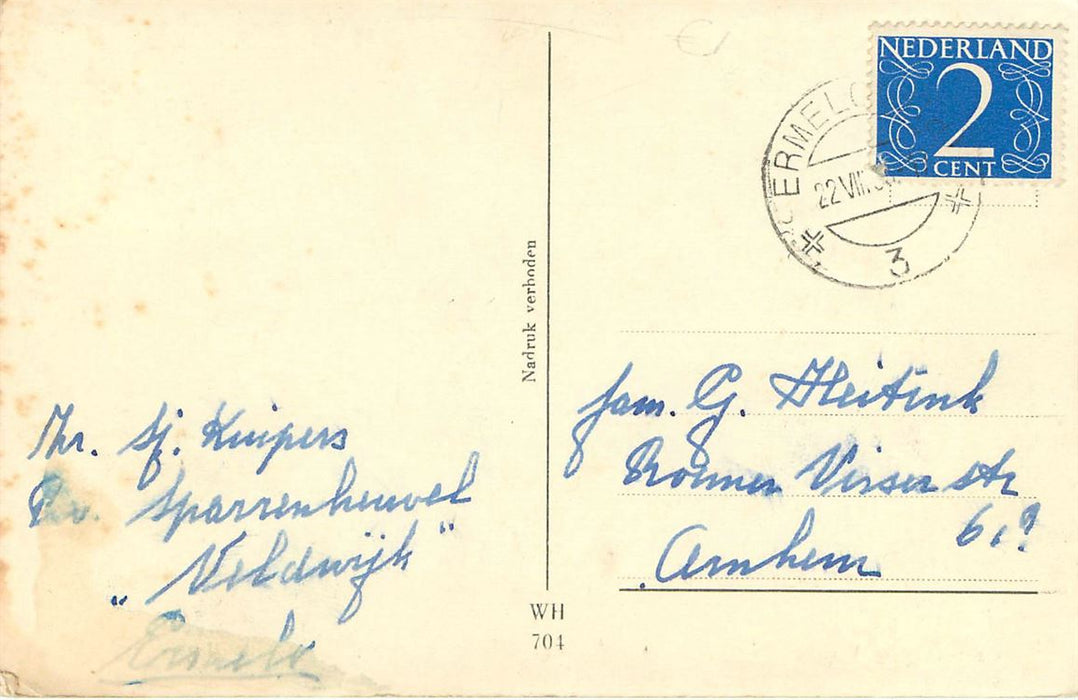 NEDERLAND
2
CENT
ERMELO
22 VIII
3
Nadruk verboden
Hr. Sj. Kuipers
Sparrenheuvel
"Veldwijk"
Ermelo
fam. G. Heitink
Romer Visser str
61
Arnhem
WH
704